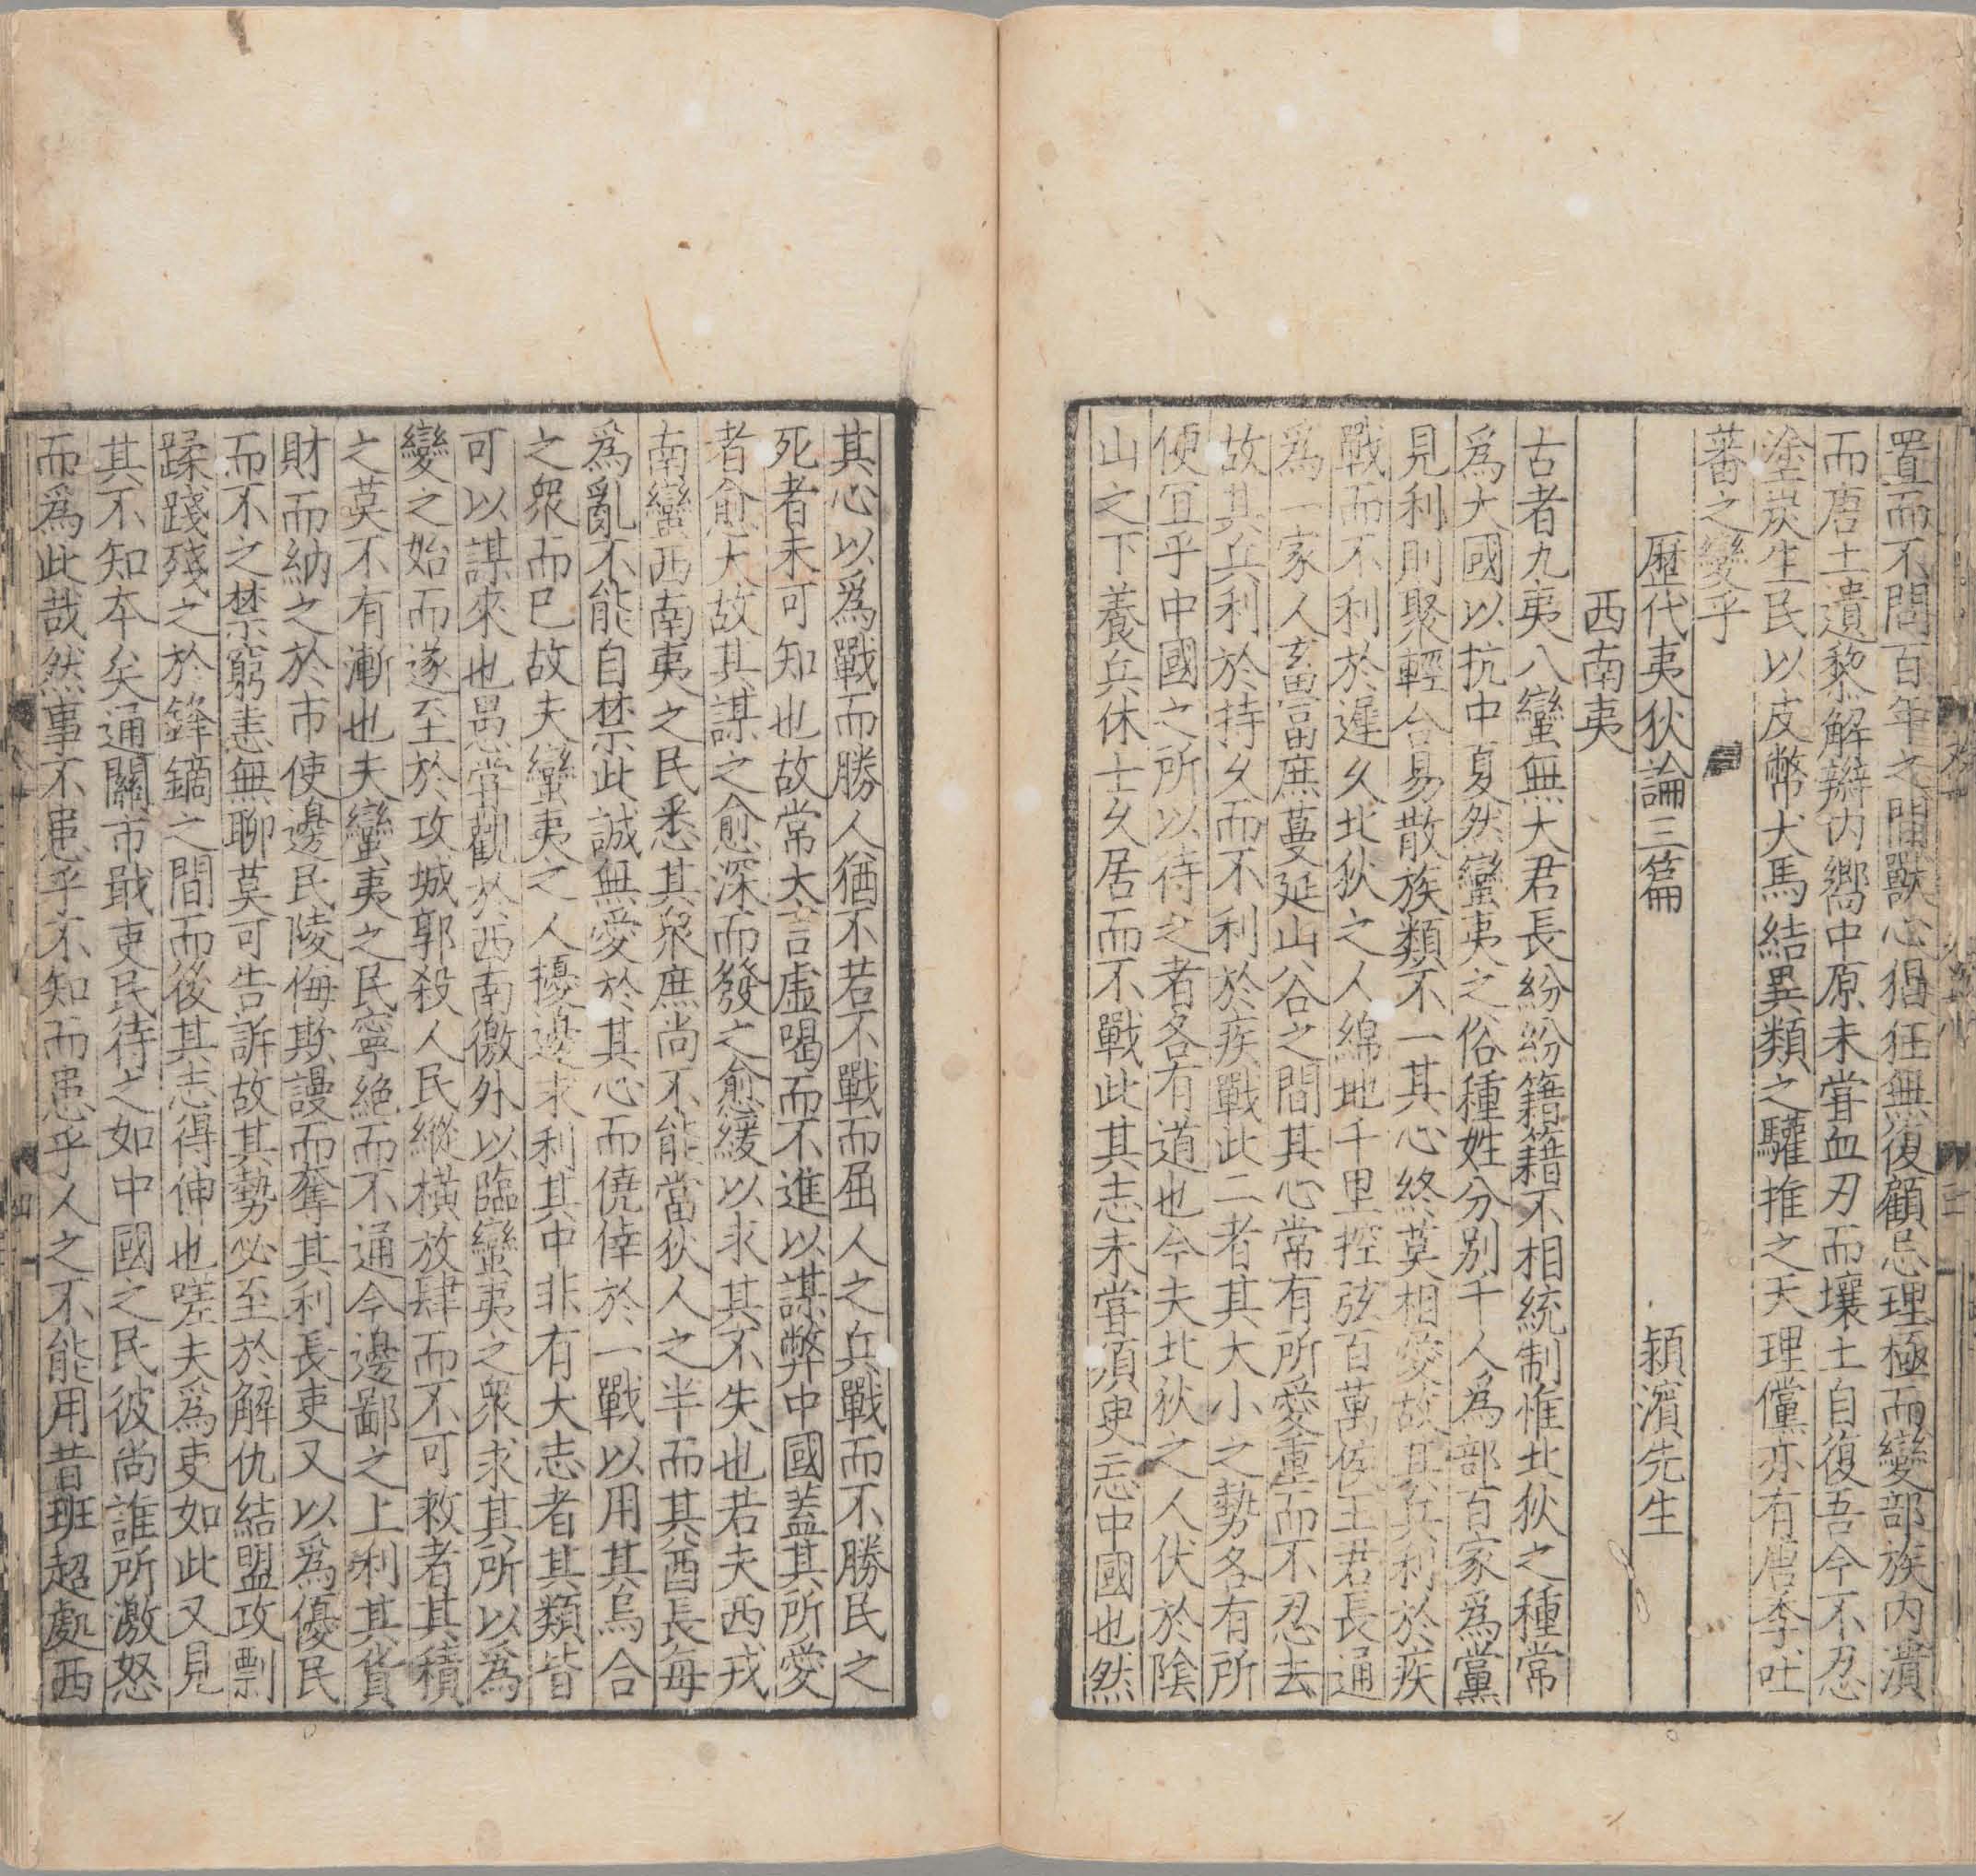 置而不問百年之間獸心猖狂無復顧忌理極而變部族內潰
而唐土遺黎解辮內嚮中原未甞血刃而壤土自復吾今不忍
塗炭生民以皮幣犬馬結異類之驩推之天理儻亦有唐季吐
蕃之變乎
歷代夷狄論三篇 潁濱先生
西南夷
古者九夷八蠻無大君長紛紛籍籍不相統制惟北狄之種常
爲大國以抗中夏然蠻夷之俗種姓分別千人爲部百家爲黨
見利則聚輕合易散族類不一其心終莫相愛故其兵利於疾
戰而不利於遲久北狄之人綿地千里控弦百萬侯王君長通
爲一家人畜富庶蔓延山谷之間其心常有所愛重而不忍去
故其兵利於持久而不利於疾戰此二者其大小之勢各有所
便宜乎中國之所以待之者各有道也今夫北狄之人伏於陰
山之下養兵休士久居而不戰此其志未甞須臾忘中國也然
其心以爲戰而勝人猶不若不戰而屈人之兵戰而不勝民之
死者未可知也故常大言虛喝而不進以謀弊中國蓋其所愛
者愈大故其謀之愈深而發之愈緩以求其不失也若夫西戎
南蠻西南夷之民悉其衆庶尚不能當狄人之半而其酋長每
爲亂不能自禁此誠無愛於其心而僥倖於一戰以用其烏合
之衆而已故夫蠻夷之人擾邊求利其中非有大志者其類皆
可以謀來也愚甞觀於西南徼外以臨蠻夷之衆求其所以爲
變之始而遂至於攻城郭殺人民縱橫放肆而不可救者其積
之莫不有漸也夫蠻夷之民寧絶而不通今邊鄙之上利其貨
財而納之於市使邊民陵侮欺謾而奪其利長吏又以爲優民
而不之禁窮恚無聊莫可告訴故其勢必至於解仇結盟攻剽
蹂踐殘之於鋒鏑之間而後其志得伸也嗟夫爲吏如此又見
其不知本矣通關市戢吏民待之如中國之民彼尚誰所激怒
而爲此哉然事不患乎不知而患乎人之不能用昔班超處西